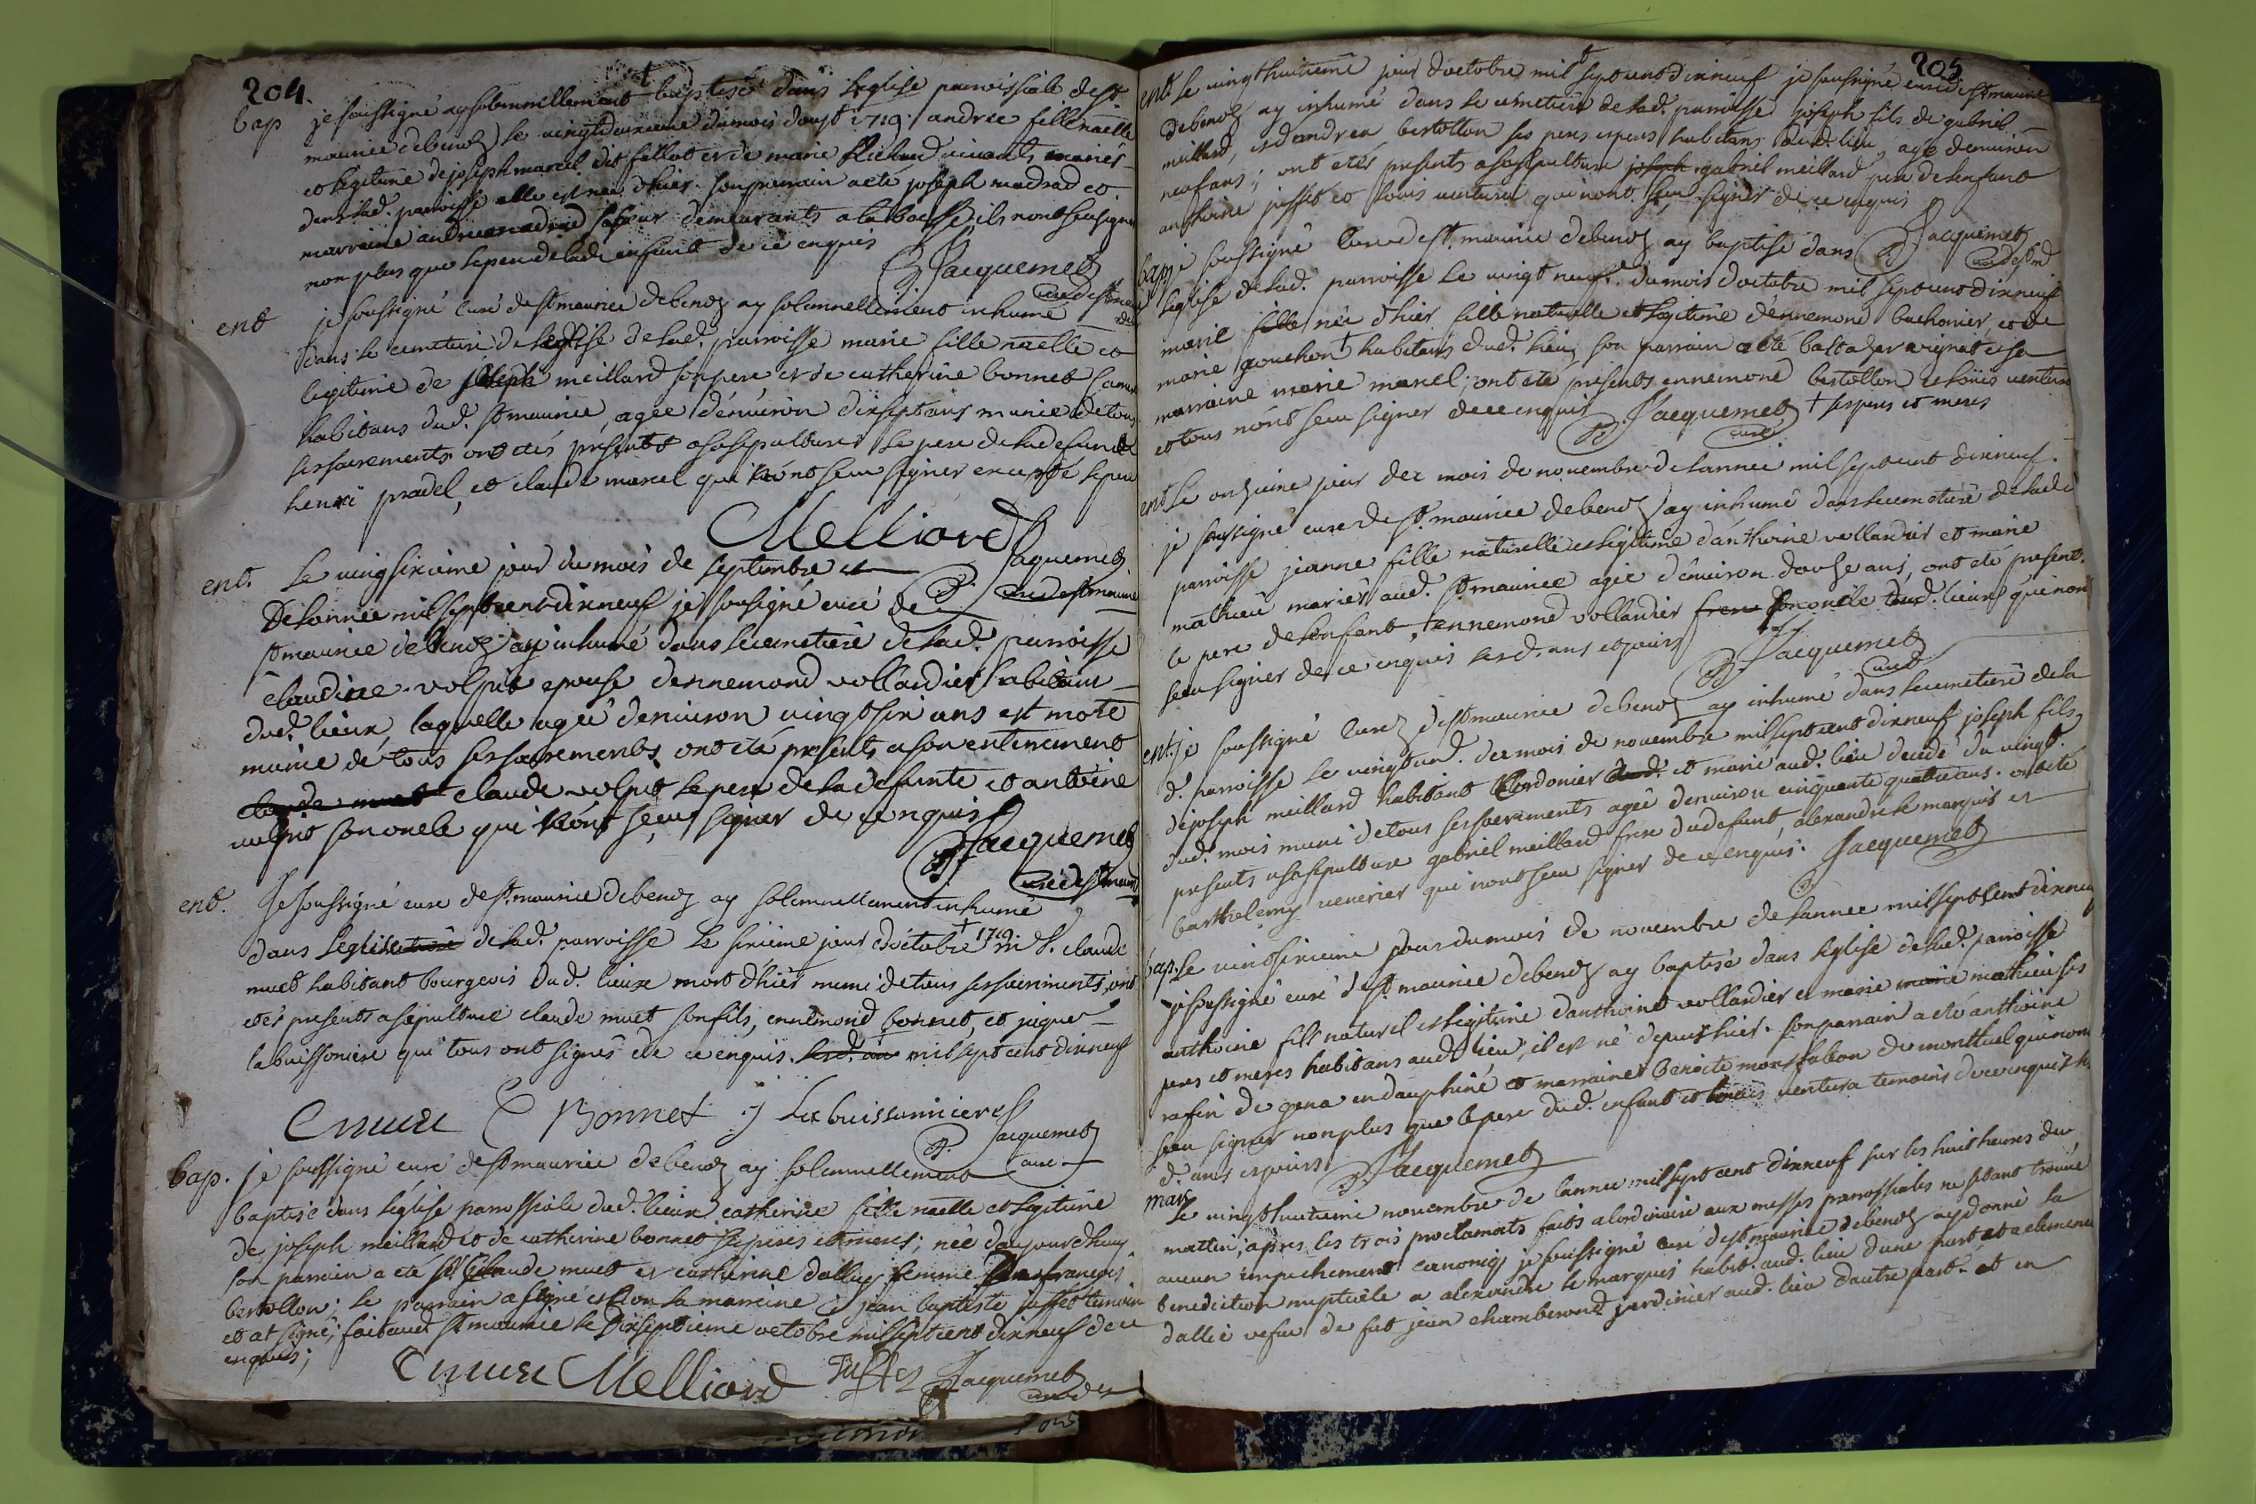 204.
bap je soussigné ay solemnellement baptisé dans leglise parroissiale de st
maurice debenoz le vingtdeuxieme dumois daoust 1719. andree fille naelle
et legitime de joseph marcel dit fillot et de marie Richard vivants mariés
dans lad. parroisse elle est née dhier. son parrain a eté joseph madrad et
marraine andree madrad sa soeur demeurants a la boisse ils nont seu signer
non plus que le pere de lad. enfant de ce enquis
Jacquemet
curé de st mau
ent je soussigné curé de st maurice debenoz ay solemnellement inhumé
dans le cemetiere de leglise de lad. parroisse marie fille naelle et
legitime de joseph meillard son pere et de catherine bonnet sa mere
habitans dud. st maurice, agee d'environ dixsept ans munie de tous
ses sacrements ont etés présents a sa sepulture le pere de lad. defunte
henri pradel, et claude marcel qui n'ont seu signer excepté le pere
Melliard
Jacquemet
curé de st maurice
ent. Le vingsixieme jour du mois de septembre et
De lannee mil sept cent dixneuf je soussigné curé de
st maurice de benoz ay inhumé dans le cemetiere de lad. parroisse
claudine volpit epouse dennemond vollardier habitant
dud. lieux, laquelle agée denviron vingtsix ans est morte
munie de tous ses sacrements ont eté presents a son enterrement
claude muet claude volpit le pere de la defunte et antoine
volpit son oncle qui n'ont seu signer de ce enquis
Jacquemet
curé de st mauri
ent. Je soussigné curé de st. maurice debenoz ay solemnellement inhumé
dans leglise de lad. parroisse le sixieme jour d'octobre † 1719 m S. claude
muet habitant bourgeois dud. lieux mort d'hier muni de tous ses sacrements, ont
etés presents a sepulture claude muet son fils, ennemond bonnet, et jaque
labuissoniere qui tous ont signés de ce enquis. lesd. an mil sept cent dixneuf
C muet C Bonnet J Labuissonniere
Jacquemet
curé
bap. je soussigné curé de st maurice debenoz ay solemnellement
baptisé dans léglise parroissiale dud. lieux catherine fille naelle et legitime
de joseph meillard et de catherine bonnet ses peres et meres; née daujourdhuy
son parrain a eté Sr Claude muet et catherine dallies femme francois
bertollon; le parrain a signé et non la marraine jean baptiste juffet temoin
et at signé; fait aud. st maurice le Dixseptieme octobre mil sept cent dixneuf de ce
enquis;
C muet Melliard Juffet Jacquemet
curé de st
205
ent Le vingthuitieme jour doctobre mil sept cent dixneuf je soussigné curé de st maurice
debenoz ay inhumé dans le cemetiere de lad. parroisse joseph fils de gabriel
meillard, et dandrea bertollon ses pere et mere habitans dud. lieu, agé denviron
neuf ans; ont etés presents a sa sepulture joseph gabriel meillard pere de lenfant
anthoine juffet et louis ventura qui nont seu signer de ce enquis
Jacquemet
curé de st m
bap je soussigné Curé de st. maurice debenoz ay baptisé dans
leglise de lad. parroisse le vingt neuf.e du mois doctobre mil sept cent dixneuf
marie fille née d'hier fille naturelle et legitime d'ennemond buchonier, et de
marie gouchon † habitans dud. lieu, son parrain a eté baltazar vignat et sa
marraine marie marcel; ont eté presents ennemond bertollon et louis ventura
et tous n'ont seu signer de ce enquis Jacquemet † ses peres et meres
curé
ent Le onzieme jour des mois de novembre de lannee mil sept cent dixneuf.
je soussigné curé de st. maurice debenoz ay inhumé dans le cemetiere de lad.
parroisse jeanne fille naturelle et legitime d'anthoine vollardier et marie
mathieu mariés aud. st maurice agée d'environ douze ans, ont eté present.
le pere de lenfant, ennemond vollardier frere son oncle dud. lieux qui n'ont
seu signer de ce enquis lesd. ans et jours Jacquemet
curé
ent. je soussigné curé de st maurice debenoz ay inhumé dans le cemetiere de la
d. parroisse le vingtun d. des mois de novembre mil sept cent dixneuf joseph fils
de joseph meillard habitant Cordonier dud. et marié aud. lieu decedé du vingt.
dud. mois muni de tous ses sacrements agée denviron cinquante quatre ans. ont eté
presents a sa sepulture gabriel meillard frere du defunt, alexandre le marquis et
barthelemy verrier qui nont seu signer de ce enquis. Jacquemet
bap. Le vintsixieme jour du mois de novembre de lannee mil sept cent dixneuf
je soussigné curé de st. maurice debenoz ay baptisé dans leglise de lad. parroisse
anthoine fils naturel et legitime danthoine vollardier et marie marie mathieu ses
peres et meres habitans aud. lieu, il est né depuis hier. son parrain a eté anthoine
raffin de gena en dauphiné et marraine benoite monfalcon de montluel qui nont
seu signer non plus que le pere dud. enfant et louis ventura temoins de ce enquis les
d. ans et jours Jacquemet
mar. Le vingthuitieme novembre de lannee mil sept cent dixneuf sur les huit heures du
mattin, apres les trois proclamats faits a lordinaire aux messes parroissiales ne setant trouvé
aucun empechement canoniq, je soussigné curé de st maurice debenoz ay donné la
benediction nuptiale a alexandre le marquis habit. aud. lieu d'une part et a clemence
dallié vefve de fut jean chamberond jardinier aud. lieu d'autre part. et en